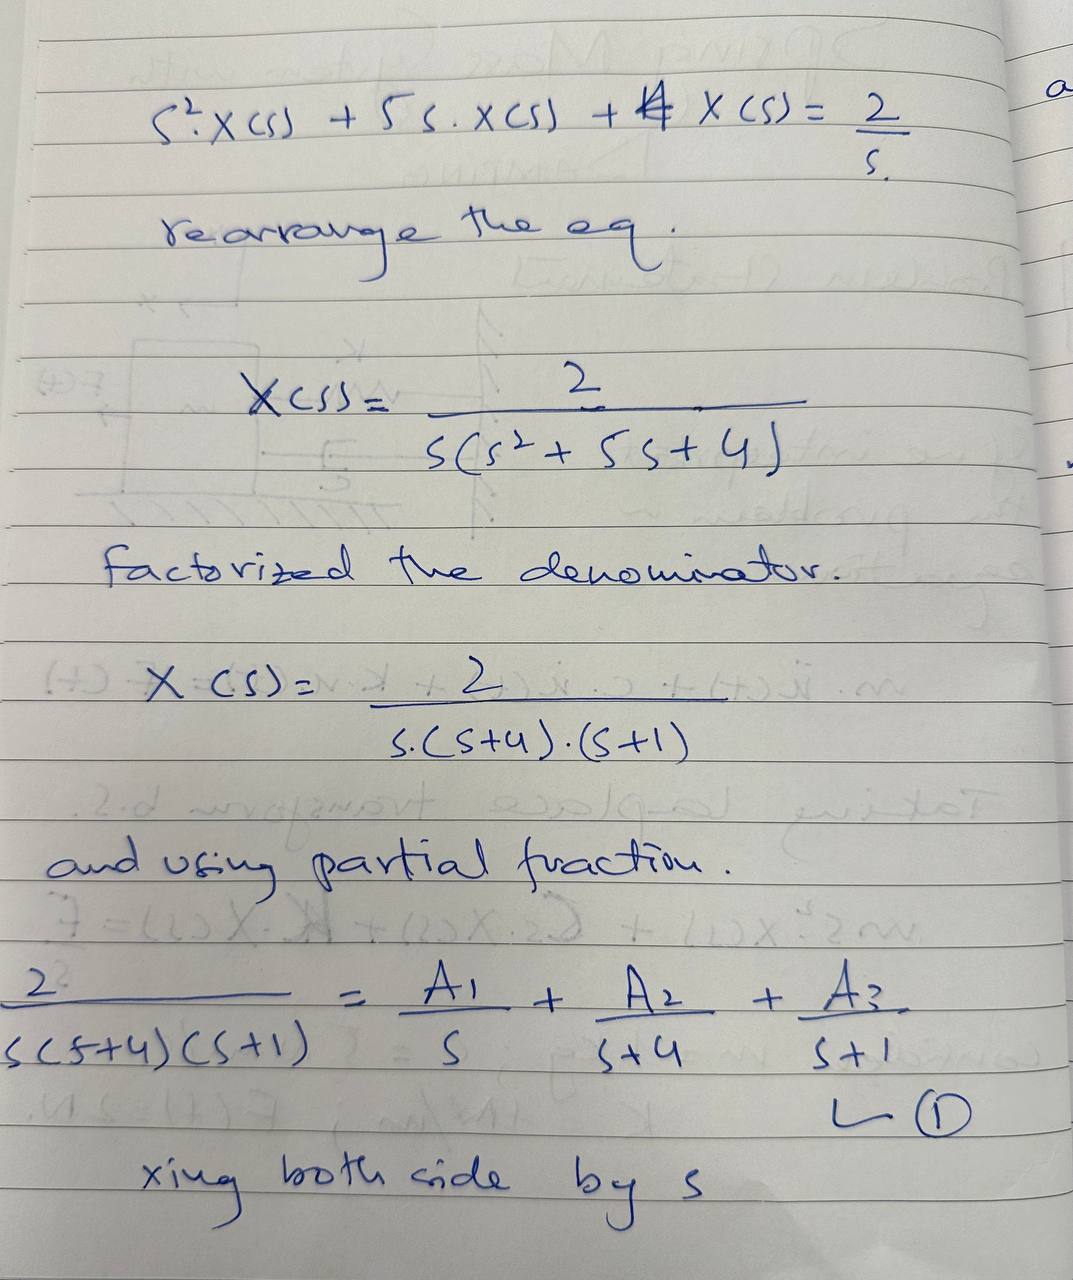 s². X(s) + 5 s. X(s) + 4 X(s) = 2/s.
rearrange the eq.
X(s) = 2/s(s² + 5s + 4)
factorized the denominator.
X (s) = 2/s.(s+4).(s+1)
and using partial fraction.
2/s(s+4)(s+1) = A1/s + A2/s+4 + A3/s+1
①
xing both side by s